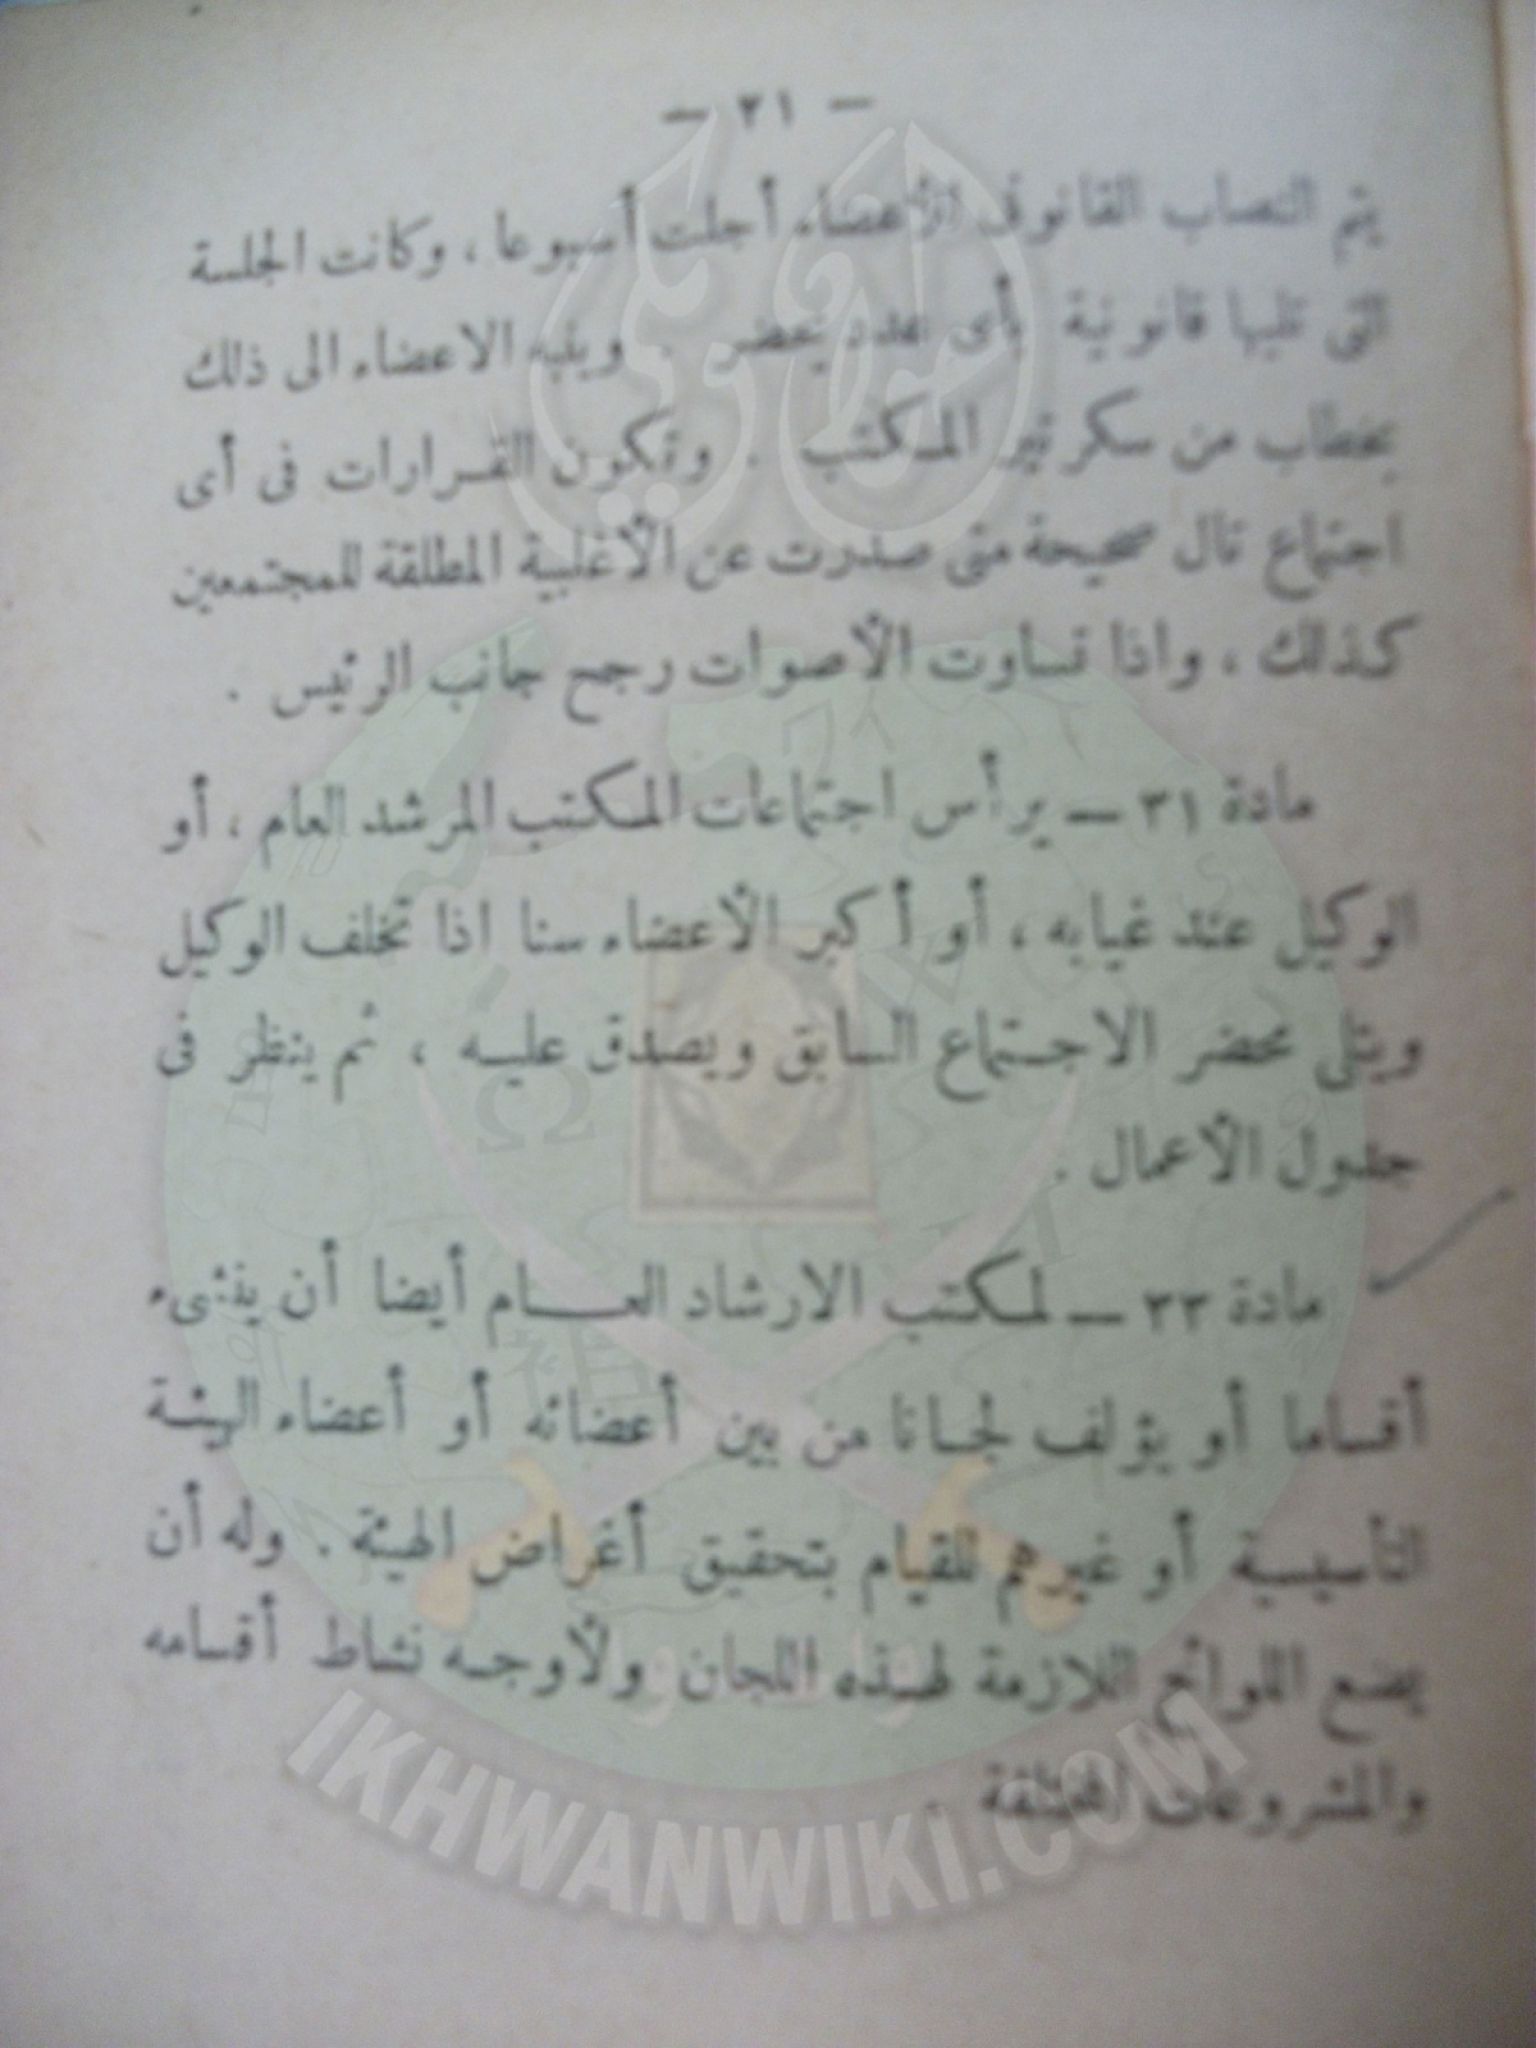 — ٢١ —
يتم النصاب القانونى للأعضاء أجلت أسبوعا ، وكانت الجلسة
التى تليها قانونية بأى عدد يحضر . وينبه الاعضاء الى ذلك
بخطاب من سكرتير المكتب . وتكون القرارات فى أى
اجتماع تال صحيحة متى صدرت عن الأغلبية المطلقة للمجتمعين
كذلك ، واذا تساوت الأصوات رجح جانب الرئيس .
مادة ٣١ — يرأس اجتماعات المكتب المرشد العام ، أو
الوكيل عند غيابه ، أو أكبر الأعضاء سنا اذا تخلف الوكيل
ويتلى محضر الاجتماع السابق ويصدق عليه ، ثم ينظر فى
جدول الأعمال .
مادة ٣٣ — لمكتب الارشاد العام أيضا أن ينشىء
أقساما أو يؤلف لجانا من بين أعضائه أو أعضاء الهيئة
التأسيسية أو غيرهم للقيام بتحقيق أغراض الهيئة . وله أن
يضع اللوائح اللازمة لهذه اللجان ولأوجه نشاط أقسامه
والمشروعات المختلفة .
IKHWANWIKI.COM